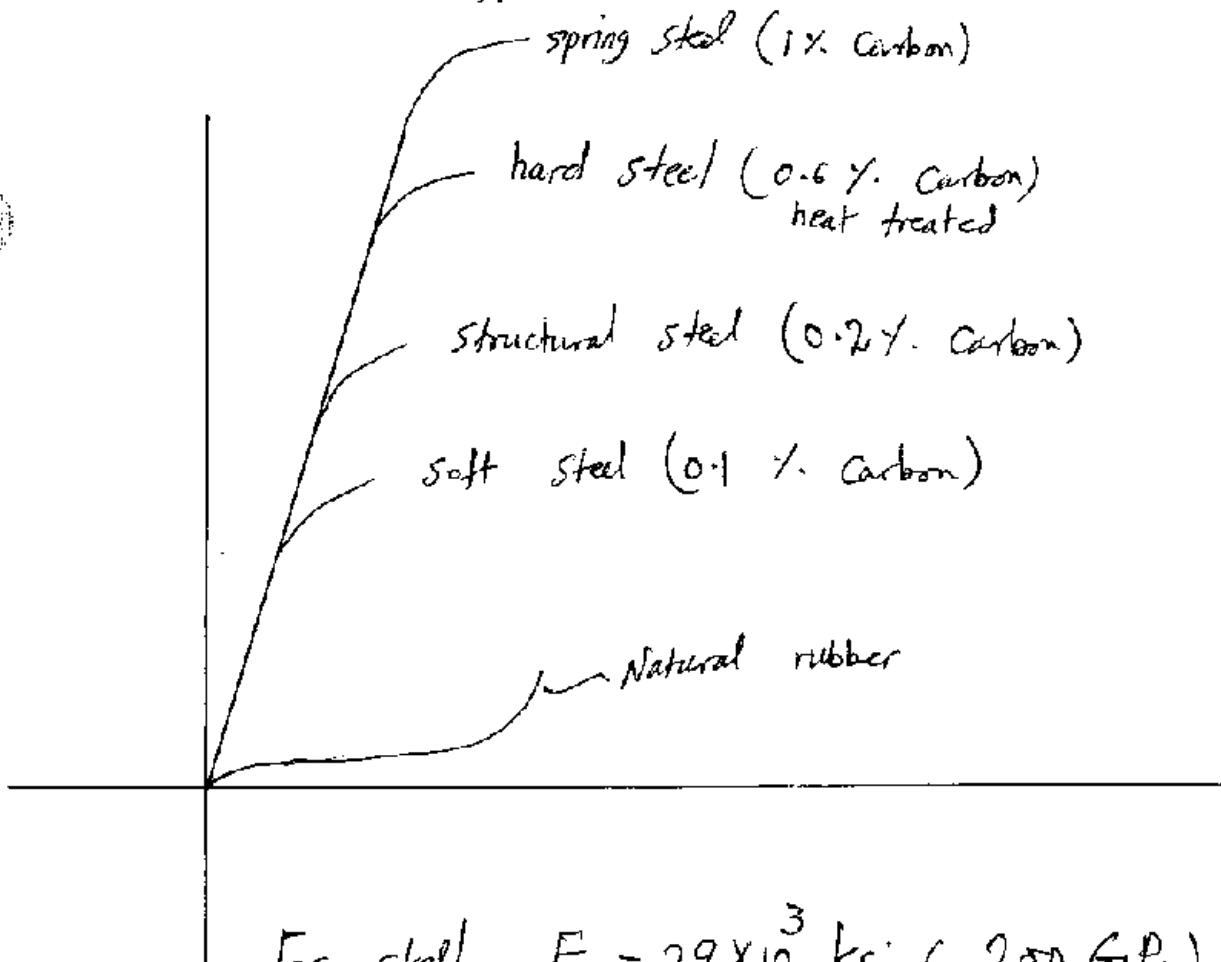 spring steel (1% Carbon)
hard steel (0.6 %. Carbon)
heat treated
structural steel (0.2 %. Carbon)
soft steel (0.1 %. Carbon)
Natural rubber
For steel E = 29 X 10³ ksi ( 200 GPa )